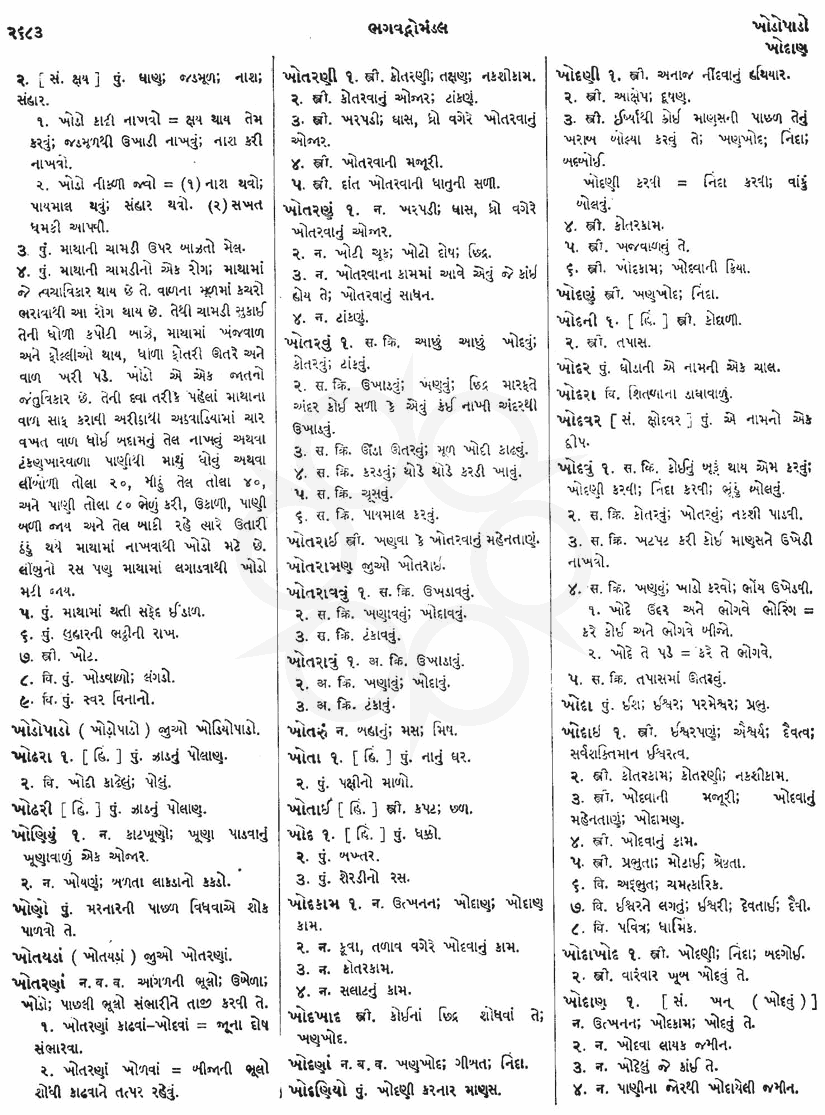 ૨૬૮૩
ભગવદ્ગોમંડલ
ખોડોપાડો
ખોદાણ
૨. [ સં. ક્ષય ] પું. ઘાણ; જડમૂળ; નાશ;
સંહાર.
૧. ખોડો કાઢી નાખવો = ક્ષય થાય તેમ
કરવું; જડમૂળથી ઉખાડી નાખવું; નાશ કરી
નાખવો.
૨. ખોડો નીકળી જવો = (૧) નાશ થવો;
પાયમાલ થવું; સંહાર થવો. (૨) સખત
ધમકી આપવી.
૩. પું. માથાની ચામડી ઉપર બાઝતો મેલ.
૪. પું. માથાની ચામડીનો એક રોગ; માથામાં
જે ત્વચાવિકાર થાય છે તે. વાળના મૂળમાં કચરો
ભરાવાથી આ રોગ થાય છે. તેથી ચામડી સુકાઈ
તેની ધોળી કપોટી બાઝે, માથામાં ખંજવાળ
અને ફોલ્લીઓ થાય, ધોળા ફોતરી ઊતરે અને
વાળ ખરી પડે. ખોડો એ એક જાતનો
જંતુવિકાર છે. તેની દવા તરીકે પહેલાં માથાના
વાળ સાફ કરાવી અરીઠાથી અઠવાડિયામાં ચાર
વખત વાળ ધોઈ બદામનું તેલ નાખવું અથવા
ટંકણખારવાળા પાણીથી માથું ધોવું અથવા
લીંબોળી તોલા ૨૦, મીઠું તેલ તોલા ૪૦,
અને પાણી તોલા ૮૦ ભેળું કરી, ઉકાળી, પાણી
બળી જાય અને તેલ બાકી રહે ત્યારે ઉતારી
ઠંડું થયે માથામાં નાખવાથી ખોડો મટે છે.
લીંબુનો રસ પણ માથામાં લગાડવાથી ખોડો
મટી જાય.
૫. પું. માથામાં થતી સફેદ ઈંડાળ.
૬. પું. લુહારની ભઠ્ઠીની રાખ.
૭. સ્ત્રી. ખોટ.
૮. વિ. પું. ખોડવાળો; લંગડો.
૯. વિ. પું. સ્વર વિનાનો.
ખોડોપાડો ( ખોડ઼ોપાડો ) જુઓ ખોડિયોપાડો.
ખોઢરા ૧. [ હિં. ] પું. ઝાડનું પોલાણ.
૨. વિ. ખોદી કાઢેલું; પોલું.
ખોઢરી [ હિં. ] પું. ઝાડનું પોલાણ.
ખોણિયું ૧. ન. કાટખૂણો; ખૂણા પાડવાનું
ખૂણાવાળું એક ઓજાર.
૨. ન. ખોયણું; બળતા લાકડાનો કકડો.
ખોણો પું. મરનારની પાછળ વિધવાએ શોક
પાળવો તે.
ખોતયડાં ( ખોતયડ઼ાં ) જુઓ ખોતરણાં.
ખોતરણાં ન. બ. વ. આગળની ભૂલો; ઉખેળા;
ખોંડો; પાછલી ભૂલો સંભારીને તાજી કરવી તે.
૧. ખોતરણાં કાઢવાં-ખોદવાં = જૂના દોષ
સંભારવા.
૨. ખોતરણાં ખોળવાં = બીજાની ભૂલો
શોધી કાઢવાને તત્પર રહેવું.
ખોતરણી ૧. સ્ત્રી. કોતરણી; તક્ષણ; નકશીકામ.
૨. સ્ત્રી. કોતરવાનું ઓજાર; ટાંકણું.
૩. સ્ત્રી. ખરપડી; ઘાસ, ધ્રો વગેરે ખોતરવાનું
ઓજાર.
૪. સ્ત્રી. ખોતરવાની મજૂરી.
૫. સ્ત્રી. દાંત ખોતરવાની ધાતુની સળી.
ખોતરણું ૧. ન. ખરપડી; ઘાસ, ધ્રો વગેરે
ખોતરવાનું ઓજાર.
૨. ન. ખોટી ચૂક; ખોટો દોષ; છિદ્ર.
૩. ન. ખોતરવાના કામમાં આવે એવું જે કાંઈ
હોય તે; ખોતરવાનું સાધન.
૪. ન. ટાંકણું.
ખોતરવું ૧. સ. ક્રિ. આછું આછું ખોદવું;
કોતરવું; ટાંકવું.
૨. સ. ક્રિ. ઉખાડવું; ખણવું; છિદ્ર મારફતે
અંદર કોઈ સળી કે એવું કંઈ નાખી અંદરથી
ઉખાડવું.
૩. સ. ક્રિ. ઊંડા ઊતરવું; મૂળ ખોદી કાઢવું.
૪. સ. ક્રિ. કરડવું; થોડે થોડે કરડી ખાવું.
૫. સ. ક્રિ. ચૂસવું.
૬. સ. ક્રિ. પાયમાલ કરવું.
ખોતરાઈ સ્ત્રી. ખણવા કે ખોતરવાનું મહેનતાણું.
ખોતરામણ જુઓ ખોતરાઈ.
ખોતરાવવું ૧. સ. ક્રિ. ઉખડાવવું.
૨. સ. ક્રિ. ખણાવવું; ખોદાવવું.
૩. સ. ક્રિ. ટંકાવવું.
ખોતરાવું ૧. અ. ક્રિ. ઉખાડાવું.
૨. અ. ક્રિ. ખણાવું; ખોદાવું.
૩. અ. ક્રિ. ટંકાવું.
ખોતરું ન. બહાનું; મસ; મિષ.
ખોતા ૧. [ હિં. ] પું. નાનું ઘર.
૨. પું. પક્ષીનો માળો.
ખોતાઈ [ હિં. ] સ્ત્રી. કપટ; છળ.
ખોદ ૧. [ હિં. ] પું. ધક્કો.
૨. પું. બખ્તર.
૩. પું. શેરડીનો રસ.
ખોદકામ ૧. ન. ઉત્ખનન; ખોદાણ; ખોદાણ
કામ.
૨. ન. કૂવા, તળાવ વગેરે ખોદવાનું કામ.
૩. ન. કોતરકામ.
૪. ન. સલાટનું કામ.
ખોદખાદ સ્ત્રી. કોઈનાં છિદ્ર શોધવાં તે;
ખણખોદ.
ખોદણાં ન. બ. વ. ખણખોદ; ગીબત; નિંદા.
ખોદણિયો પું. ખોદણી કરનાર માણસ.
ખોદણી ૧. સ્ત્રી. અનાજ નીંદવાનું હથિયાર.
૨. સ્ત્રી. આક્ષેપ; દૂષણ.
૩. સ્ત્રી. ઈર્ષ્યાથી કોઈ માણસની પાછળ તેનું
ખરાબ બોલ્યા કરવું તે; ખણખોદ; નિંદા;
બદબોઈ.
ખોદણી કરવી = નિંદા કરવી; વાંકું
બોલવું.
૪. સ્ત્રી. કોતરકામ.
૫. સ્ત્રી. ખજવાળવું તે.
૬. સ્ત્રી. ખોદકામ; ખોદવાની ક્રિયા.
ખોદણું સ્ત્રી. ખણખોદ; નિંદા.
ખોદની ૧. [ હિં. ] સ્ત્રી. કોદાળી.
૨. સ્ત્રી. તપાસ.
ખોદર પું. ઘોડાની એ નામની એક ચાલ.
ખોદરા વિ. શિતળાના ડાઘાવાળું.
ખોદવર [ સં. ક્ષોદવર ] પું. એ નામનો એક
દ્વીપ.
ખોદવું ૧. સ. ક્રિ. કોઈનું બૂરું થાય એમ કરવું;
ખોદણી કરવી; નિંદા કરવી; ભૂંડું બોલવું.
૨. સ. ક્રિ. કોતરવું; ખોતરવું; નકશી પાડવી.
૩. સ. ક્રિ. ખટપટ કરી કોઈ માણસને ઉખેડી
નાખવો.
૪. સ. ક્રિ. ખણવું; ખાડો કરવો; ભોંય ઉખેડવી.
૧. ખોદે ઉંદર અને ભોગવે ભોરિંગ =
કરે કોઈ અને ભોગવે બીજો.
૨. ખોદે તે પડે = કરે તે ભોગવે.
૫. સ. ક્રિ. તપાસમાં ઊતરવું.
ખોદા પું. ઈશ; ઈશ્વર; પરમેશ્વર; પ્રભુ.
ખોદાઇ ૧. સ્ત્રી. ઈશ્વરપણું; ઐશ્વર્ય; દૈવત્વ;
સર્વશક્તિમાન ઈશ્વરત્વ.
૨. સ્ત્રી. કોતરકામ; કોતરણી; નકશીકામ.
૩. સ્ત્રી. ખોદવાની મજૂરી; ખોદવાનું
મહેનતાણું; ખોદામણ.
૪. સ્ત્રી. ખોદવાનું કામ.
૫. સ્ત્રી. પ્રભુતા; મોટાઈ; શ્રેષ્ઠતા.
૬. વિ. અદ્ભુત; ચમત્કારિક.
૭. વિ. ઈશ્વરને લગતું; ઈશ્વરી; દેવતાઈ; દૈવી.
૮. વિ. પવિત્ર; ધાર્મિક.
ખોદાખોદ ૧. સ્ત્રી. ખોદણી; નિંદા; બદગોઈ.
૨. સ્ત્રી. વારંવાર ખૂબ ખોદવું તે.
ખોદાણ ૧. [ સં. ખન્ ( ખોદવું ) ]
ન. ઉત્ખનન; ખોદકામ; ખોદવું તે.
૨. ન. ખોદવા લાયક જમીન.
૩. ન. ખોદેલું જે કાંઈ તે.
૪. ન. પાણીના જોરથી ખોદાયેલી જમીન.